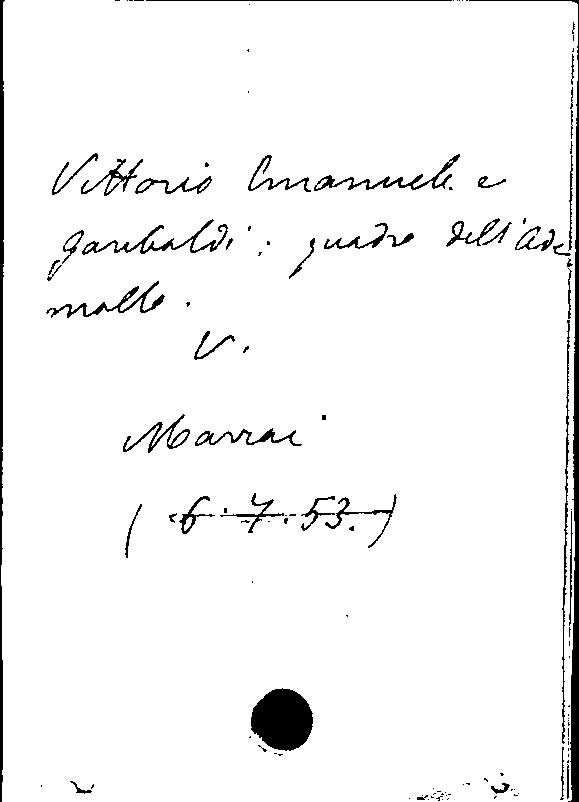 Vittorio Emanuele e
Garibaldi: quadro dell'Ade
mollo.
V.
Marrai
(6.7.53.)